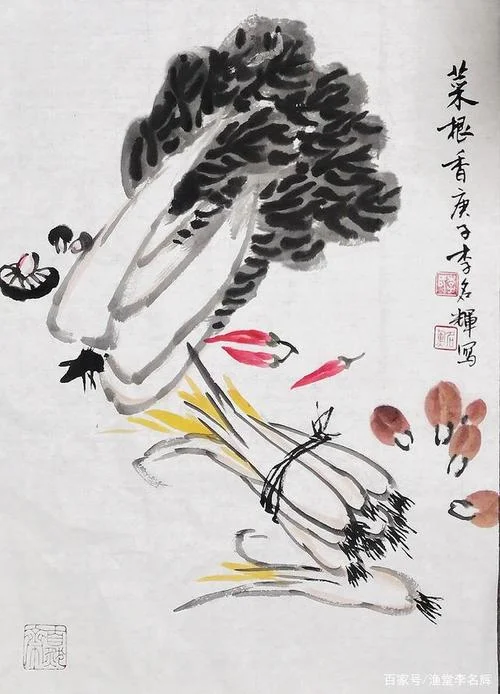 菜根香庚子李名輝写
百家号/渔堂李名辉